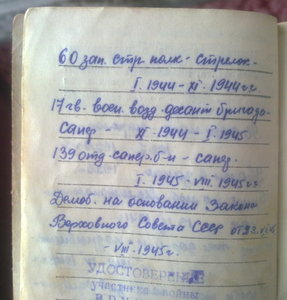 60 зап. стр. полк - стрелок -
I. 1944 - XI. 1944 г.г.
17 гв. возд. десант. бригада
сапер - XI. 1944 - I. 1945
139 отд. сапер. б-н - сапер.
I. 1945 - VIII. 1945 г.г.
Демоб. на основании Закона
Верховного Совета СССР от
- VIII - 1945 г.
УДОСТОВЕРЕНИЕ
участника войны